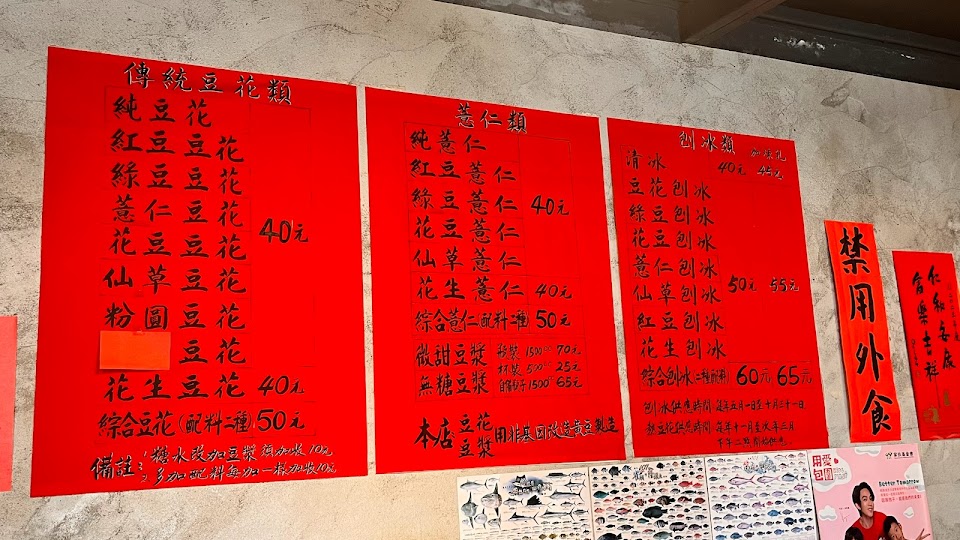 傳統豆花類
純豆花
紅豆豆花
綠豆豆花
薏仁豆花
花豆豆花
仙草豆花
粉圓豆花
豆花
40元
花生豆花 40元
綜合豆花(配料二種)50元
備註:1.糖水改加豆漿 須加收10元
2.多加配料每加一樣加收10元
薏仁類
純薏仁
紅豆薏仁
綠豆薏仁
花豆薏仁
仙草薏仁
40元
花生薏仁 40元
綜合薏仁(配料二種)50元
微甜豆漿
無糖豆漿
瓶裝1500cc 70元
杯裝500cc 25元
自備瓶子1500cc 65元
本店豆花豆漿用非基因改造黃豆製造
刨冰類
加煉乳
清冰 40元 45元
豆花刨冰
綠豆刨冰
花豆刨冰
薏仁刨冰
仙草刨冰
紅豆刨冰
花生刨冰
50元 55元
綜合刨冰(二種配料)60元 65元
刨冰供應時間 每年五月一日至十月三十一日
熱豆花供應時間 每年十一月至次年三月
下午二時開始供應
禁用外食
用愛包圍
Better Tomorrow